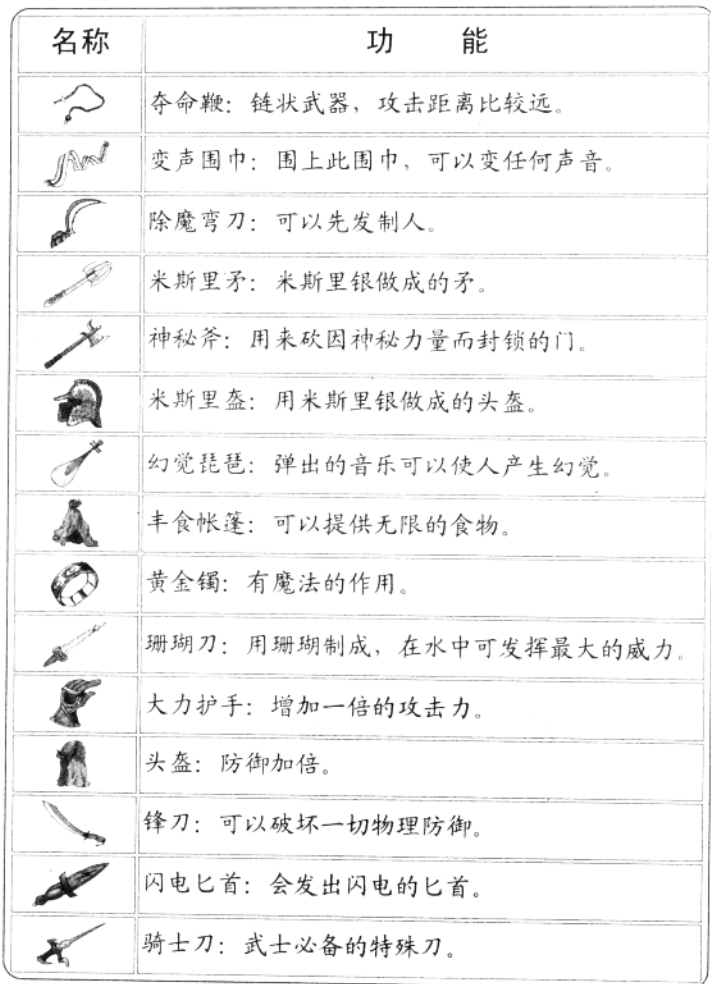 名称 功 能
夺命鞭：链状武器，攻击距离比较远。
变声围巾：围上此围巾，可以变任何声音。
除魔弯刀：可以先发制人。
米斯里矛：米斯里银做成的矛。
神秘斧：用来砍因神秘力量而封锁的门。
米斯里盔：用米斯里银做成的头盔。
幻觉琵琶：弹出的音乐可以使人产生幻觉。
丰食帐篷：可以提供无限的食物。
黄金镯：有魔法的作用。
珊瑚刀：用珊瑚制成，在水中可发挥最大的威力。
大力护手：增加一倍的攻击力。
头盔：防御加倍。
锋刀：可以破坏一切物理防御。
闪电匕首：会发出闪电的匕首。
骑士刀：武士必备的特殊刀。